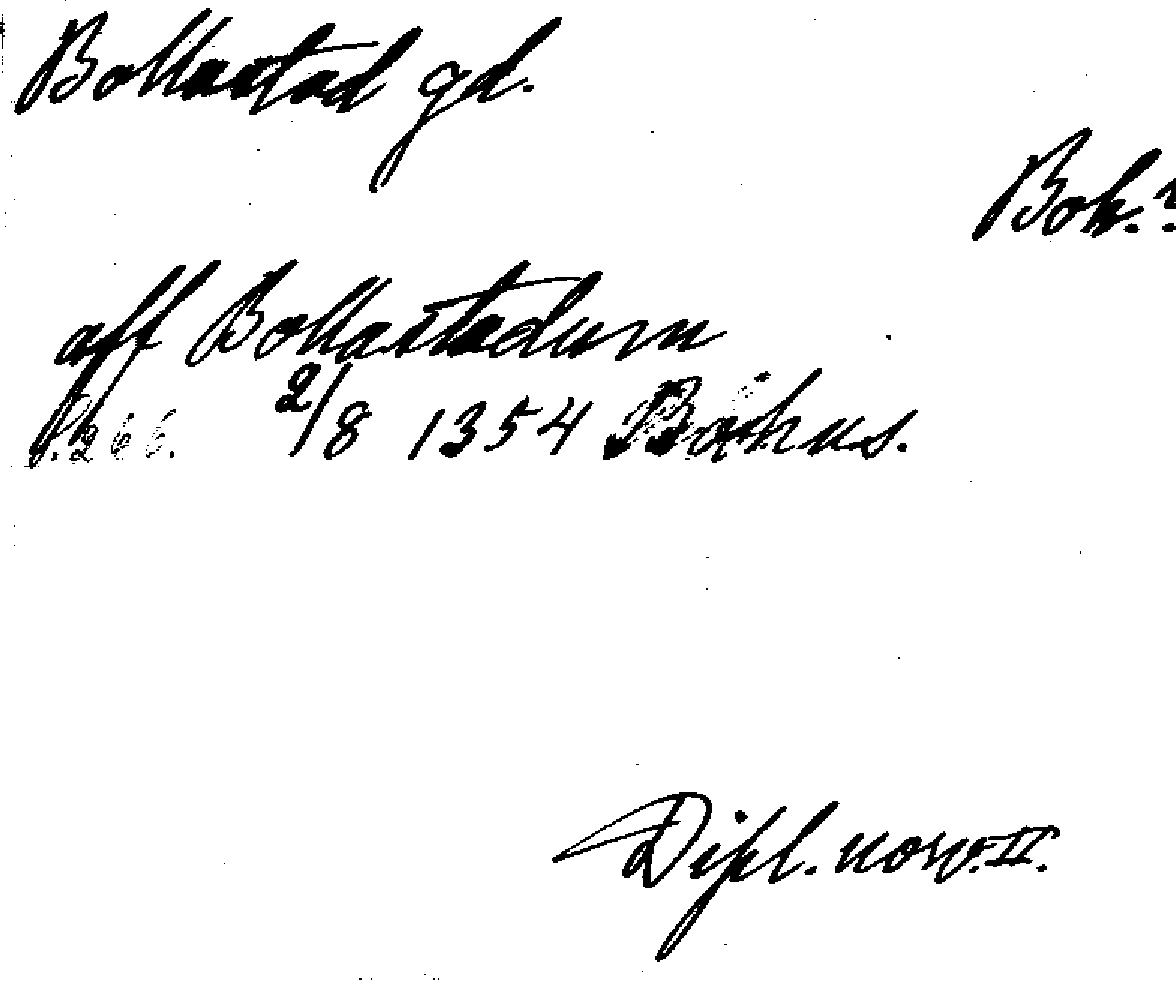 Bollastad gd.
Boh.
aff Bollastadum
p. 266. 2/8 1354 Båhus.
Dipl. norv. II.